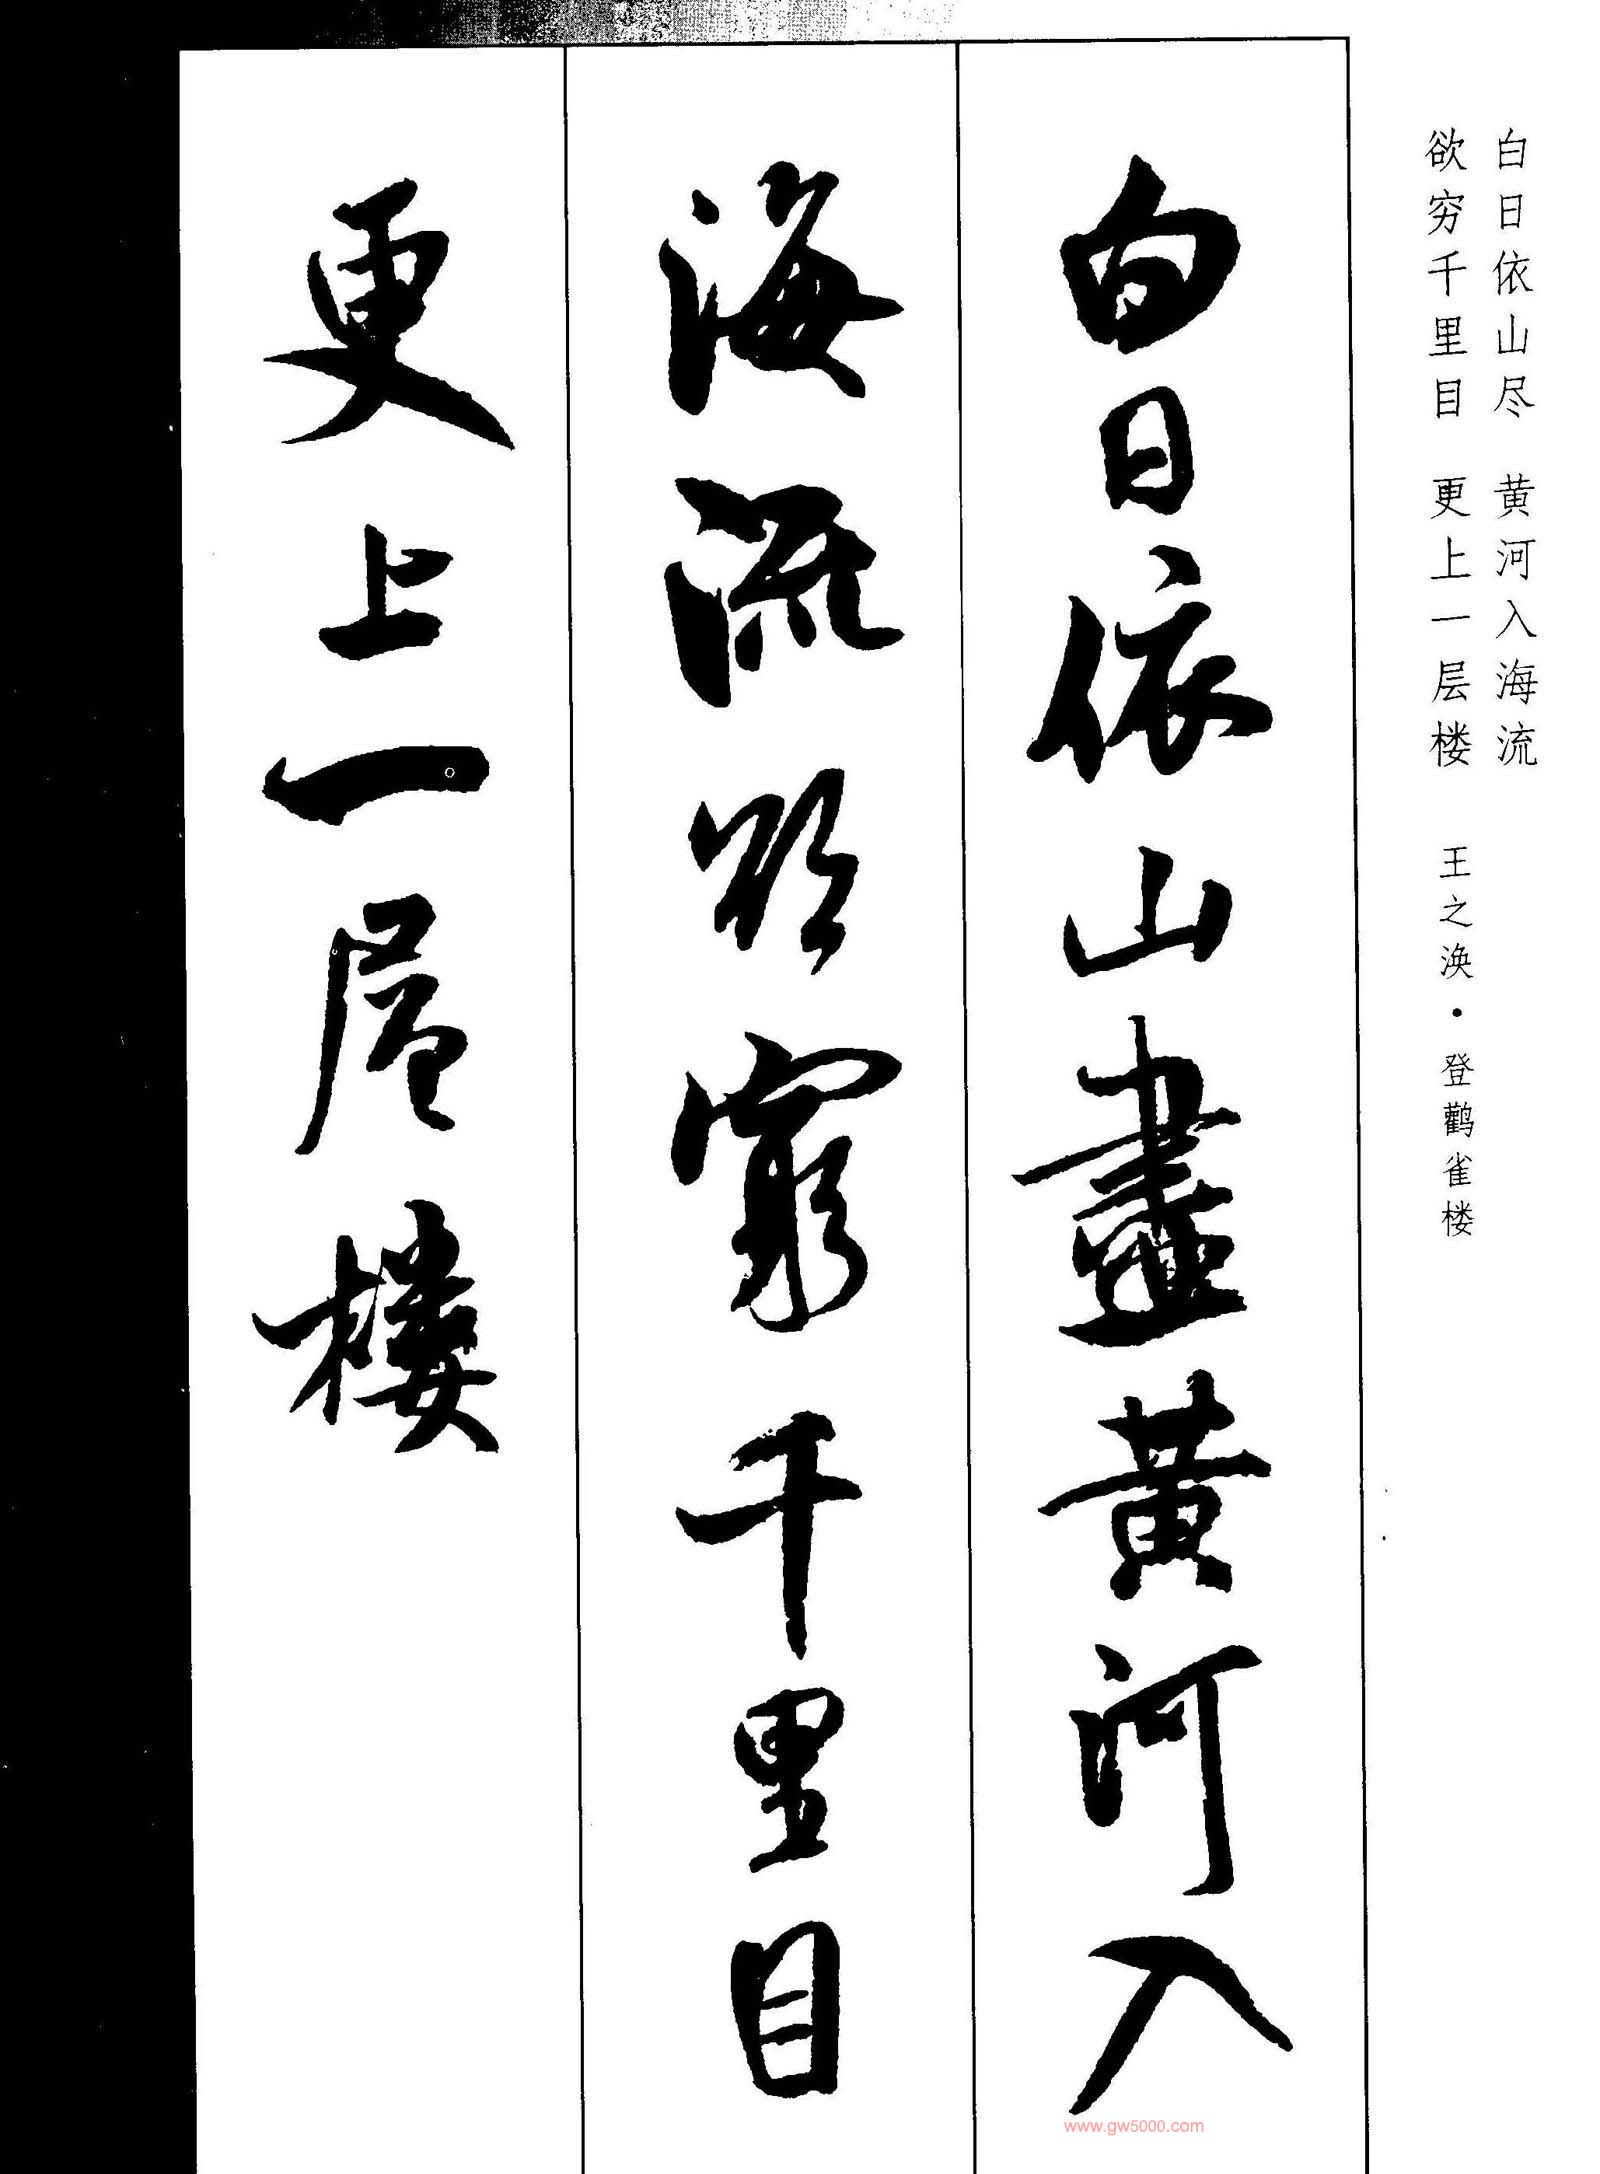 白日依山尽 黄河入海流
欲穷千里目 更上一层楼 王之涣·登鹳雀楼
白日依山盡黃河入
海流欲窮千里目
更上一層樓
www.gw5000.com